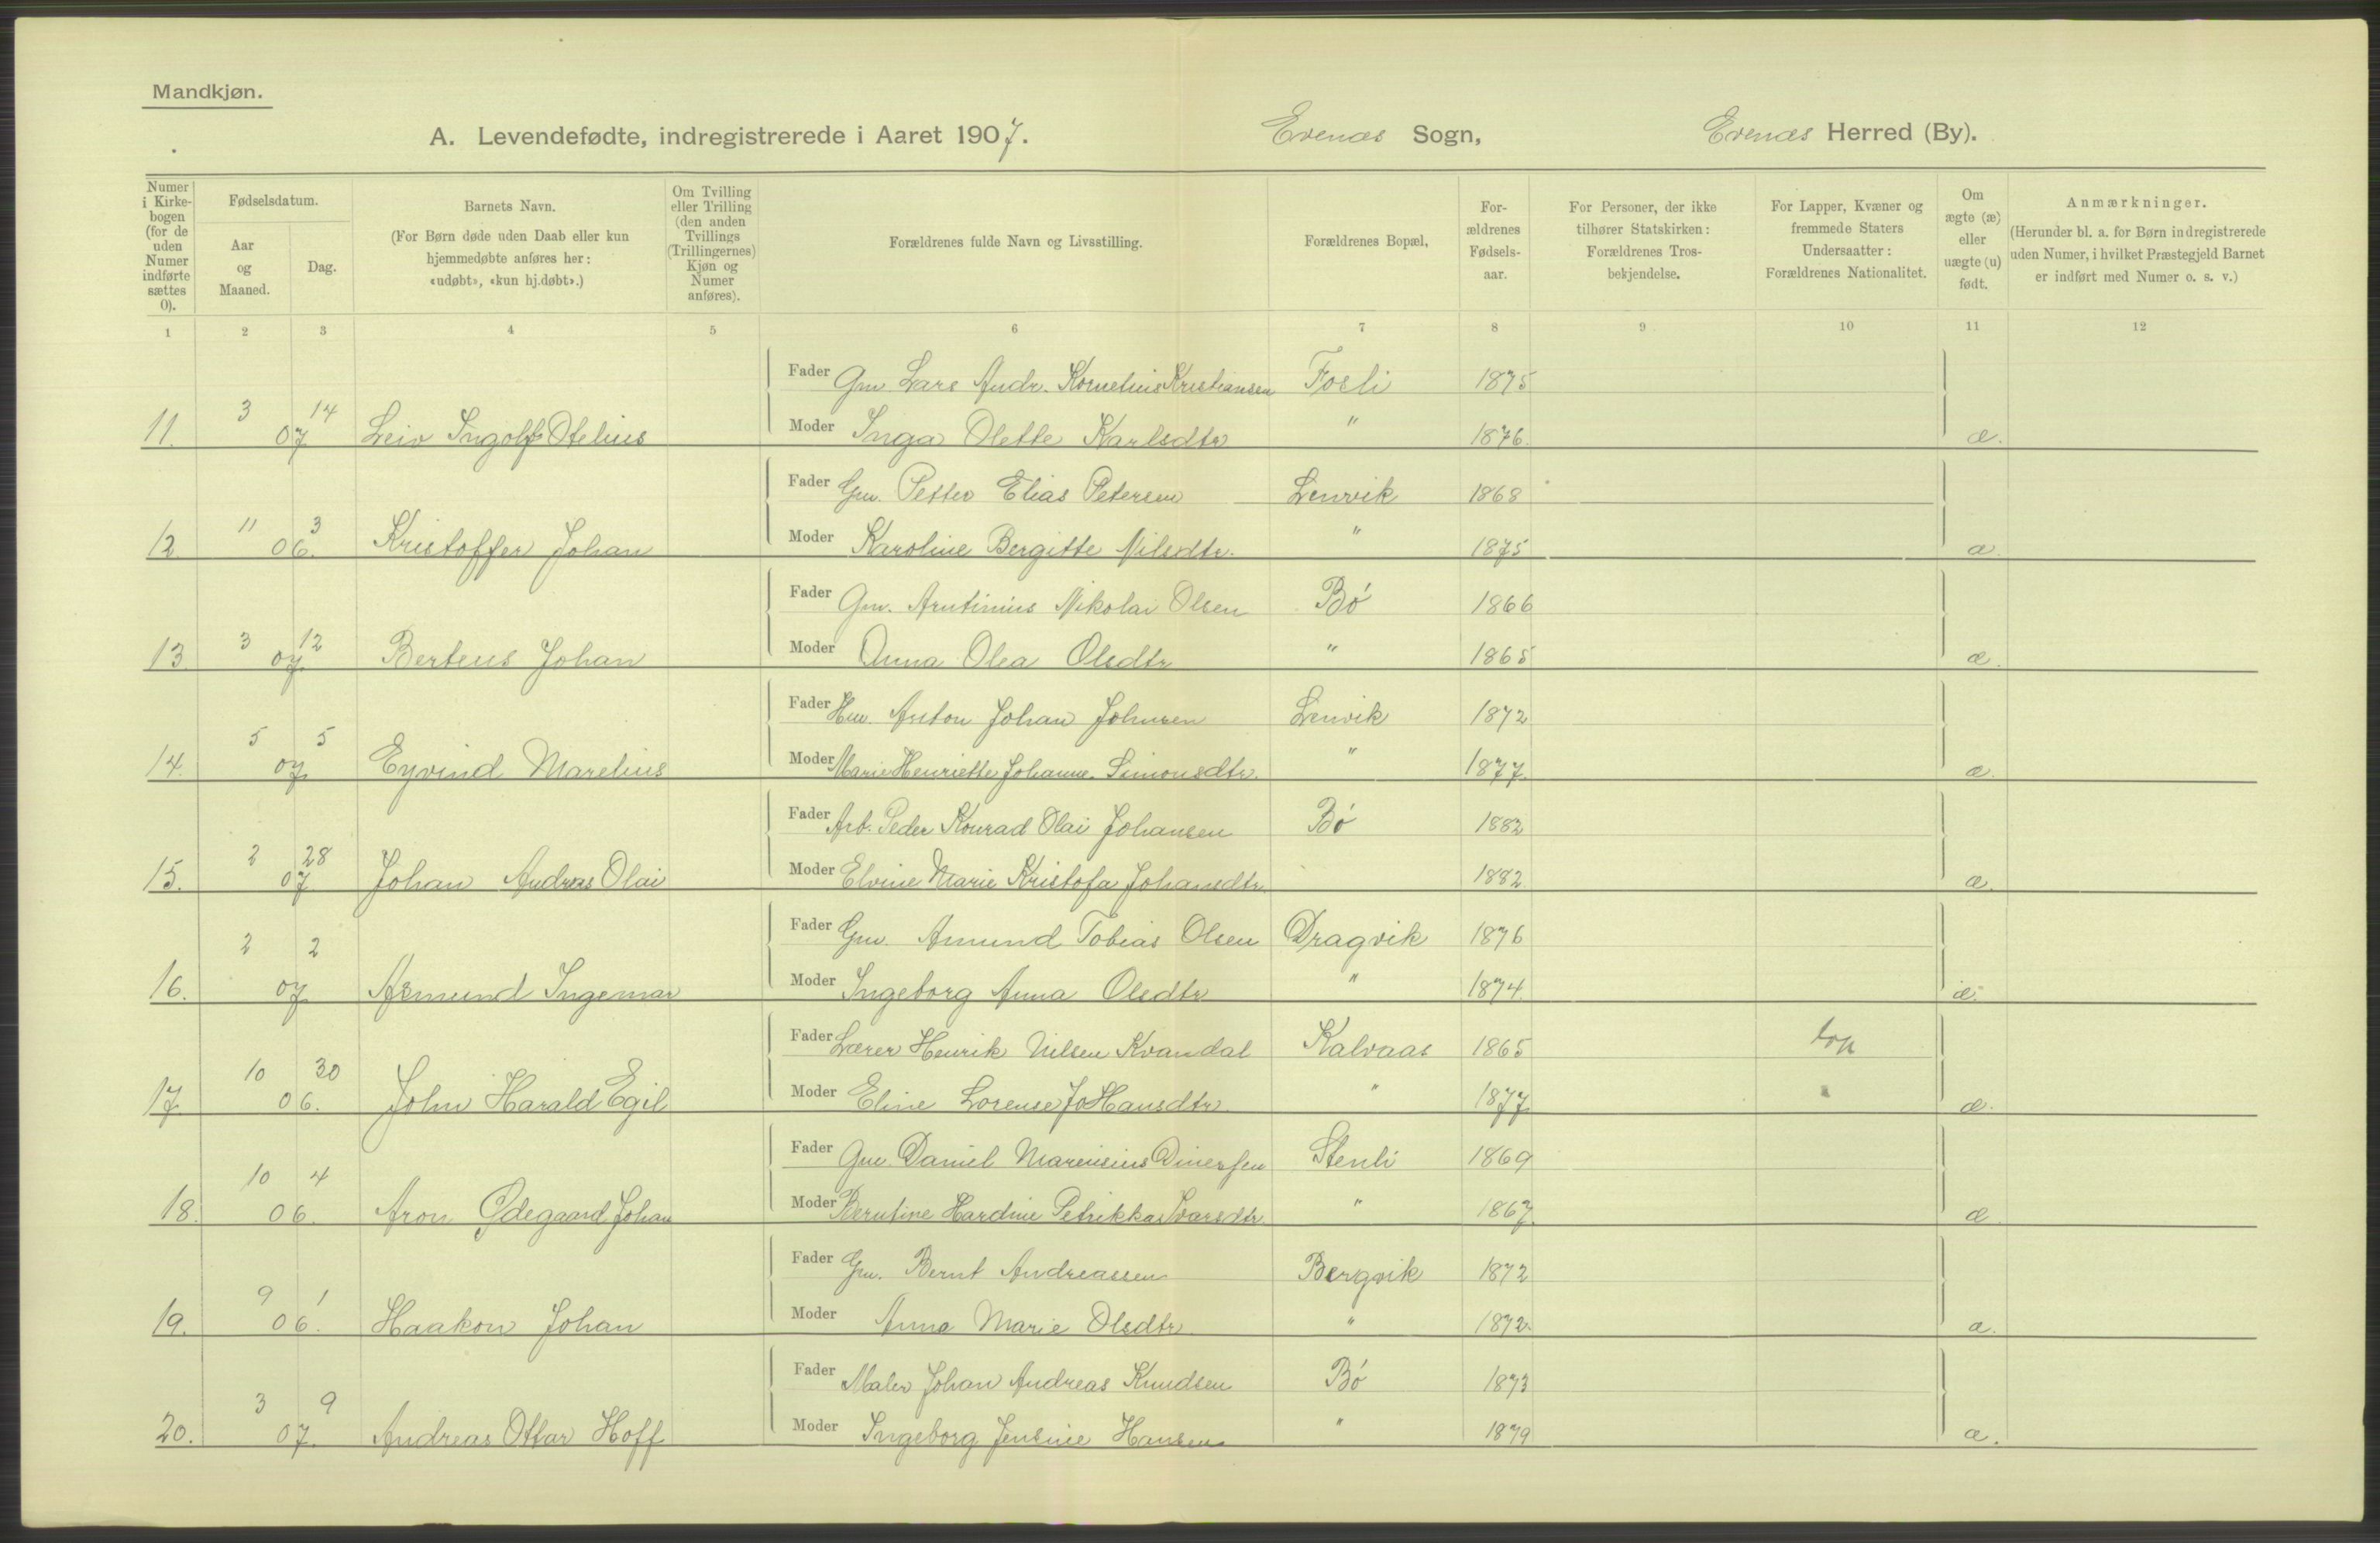 Mandkjøn.
A. Levendefødte, indregistrerede i Aaret 1907. Evenæs Sogn, Evenæs Herred (By).
Numer i Kirkebogen (for de uden Numer indførte sættes 0).
Fødselsdatum.
Aar og Maaned.
Dag.
Barnets Navn.
(For Børn døde uden Daab eller kun hjemmedøbte anføres her: «udøbt», «kun hj.døbt».)
Om Tvilling eller Trilling (den anden Tvillings (Trillingernes) Kjøn og Numer anføres).
Forældrenes fulde Navn og Livsstilling.
Forældrenes Bopæl,
Forældrenes Fødselsaar.
For Personer, der ikke tilhører Statskirken: Forældrenes Trosbekjendelse.
For Lapper, Kvæner og fremmede Staters Undersaatter: Forældrenes Nationalitet.
Om ægte (æ) eller uægte (u) født.
Anmærkninger.
(Herunder bl. a. for Børn indregistrerede uden Numer, i hvilket Præstegjeld Barnet er indført med Numer o. s. v.)
1 2 3 4 5 6 7 8 9 10 11 12
Fader Gm Lars Andr. Kornelius Kristiansen Fosli 1875
11. 3 07 14 Leiv Ingolf Otelius Moder Inga Olette Karlsdtr " 1876. æ.
Fader Gm. Petter Elias Petersen Lenvik 1868
12 11 06. 3 Kristoffer Johan Moder Karoline Bergitte Nilsdtr. " 1875 æ.
Fader Gm. Arntinius Nikolai Olsen Bó 1866
13. 3 07. 12 Berteus Johan Moder Anna Olea Olsdtr " 1865 æ.
Fader Hm. Anton Johan Johnsen Lenvik 1872
14. 5 07. 5 Eyvind Marelius Moder Marie Henriette Johanne Simonsdtr. " 1877. æ.
Fader Arb. Peder Konrad Olai Johansen Bó 1882
15. 2 07 28 Johan Andreas Olai Moder Elvine Marie Kristofa Johansdtr. 1882 æ.
Fader Gm. Amund Tobias Olsen Dragvik 1876
16. 2 07. 2 Asmund Ingemar Moder Ingeborg Anna Olsdtr " 1874. æ.
Fader Lærer Henrik Nilsen Kvandal Kalvaas 1865 lap
17. 10 06. 30 John Harald Egil Moder Eline Lorense JoHansdtr. " 1877. " æ.
Fader Gm. Daniel Marensius Dinessen Stenli 1869
18. 10 06. 4 Aron Ødegaard Johan Moder Berntine Hardine Petrikka Ivarsdtr. " 1867. æ
Fader Gm. Bernt Andreassen Bergvik 1872
19. 9 06. 1 Haakon Johan Moder Anna Marie Olsdtr. " 1872. æ.
Fader Maler Johan Andreas Knudsen Bó 1873
20. 3 07. 9 Andreas Ottar Hoff Moder Ingeborg Jensine Hansen " 1879 æ.